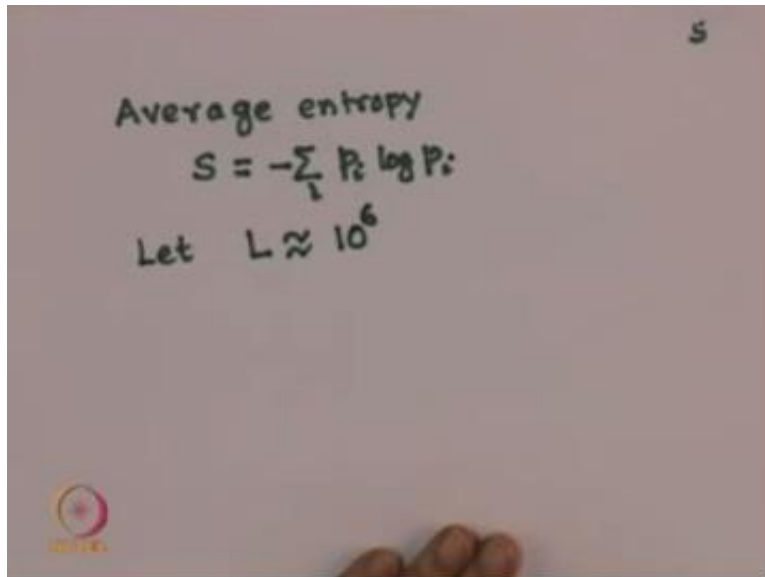 S
Average entropy
S = -∑ᵢ pᵢ log pᵢ
Let L ≈ 10⁶